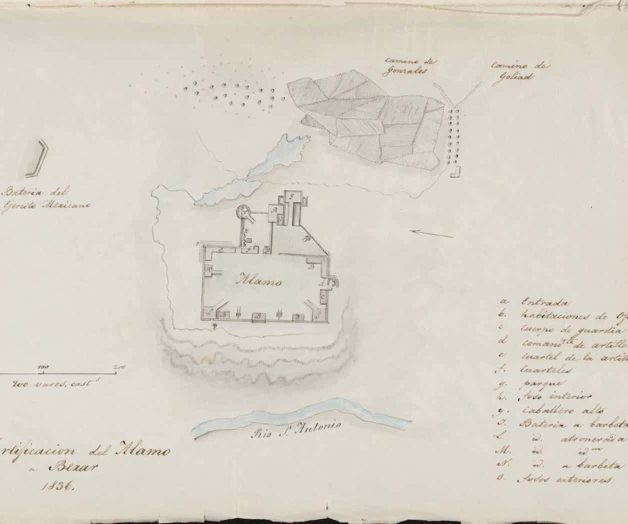 camino de
Gonzales
camino de
Goliad
Bateria del
Egercito Mexicano
Alamo
100
200
200 varas, cast.s
Rio Sn. Antonio
rtificacion del Alamo
a Bezar
1836.
a Entrada
b. habitaciones de of
c cuerpo de guardia
d comanda. de artill
e cuartel de la artill
f. Cuarteles
g. parque
h. foso interior
y. Caballero alto
J. Bateria a barbeta
L id. atronerada
M. id. id.
N. id. a barbeta
O. fosos exteriores